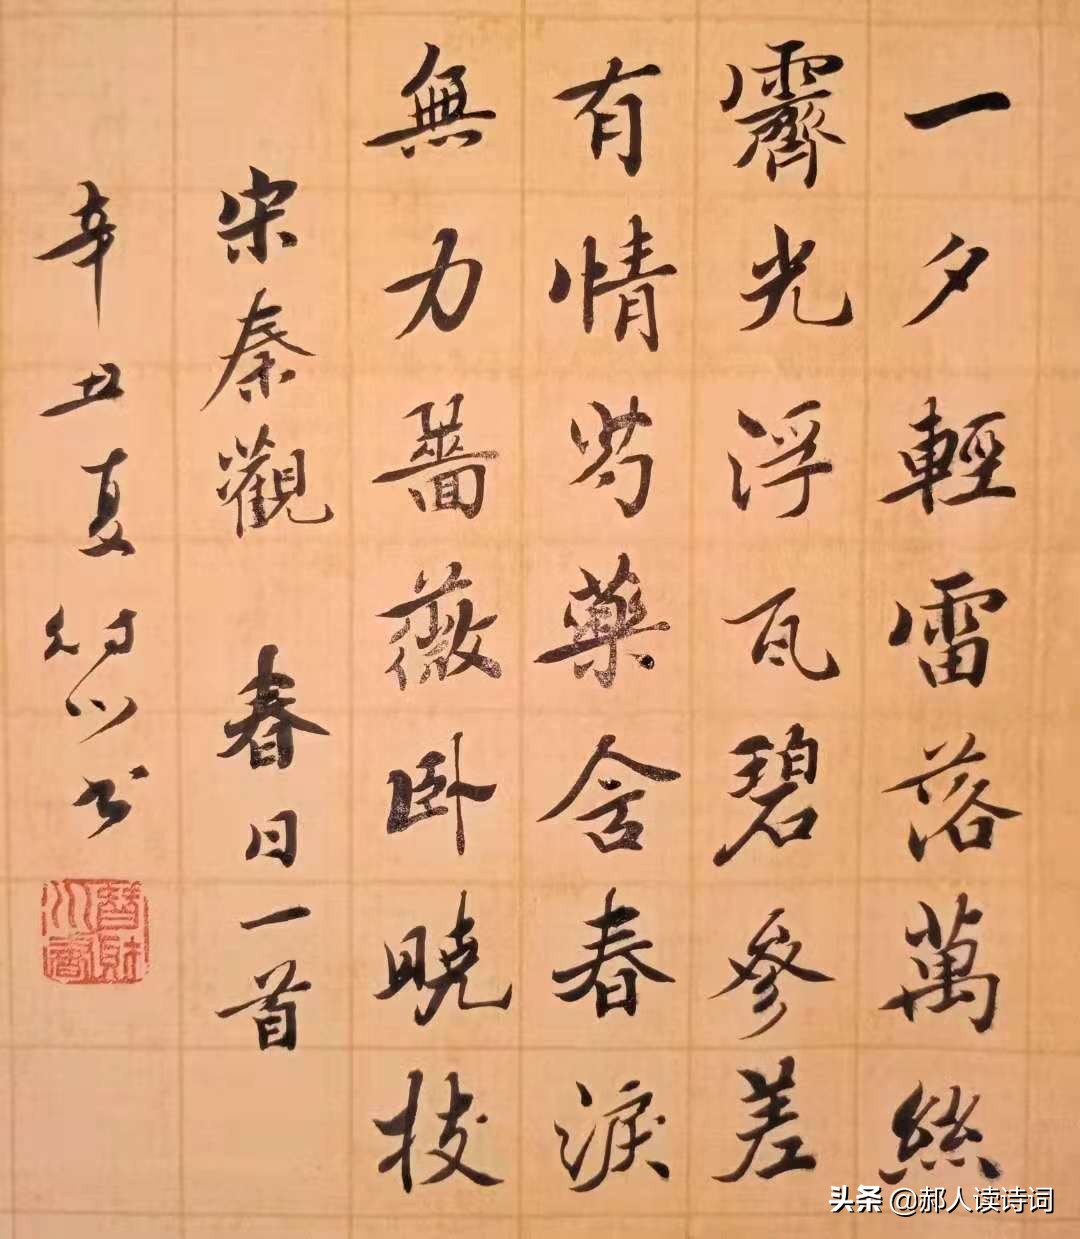 一夕輕雷落萬絲
霽光浮瓦碧參差
有情芍藥含春淚
無力薔薇卧曉枝
宋秦觀 春日一首
辛丑夏 书
头条 @郝人读诗词